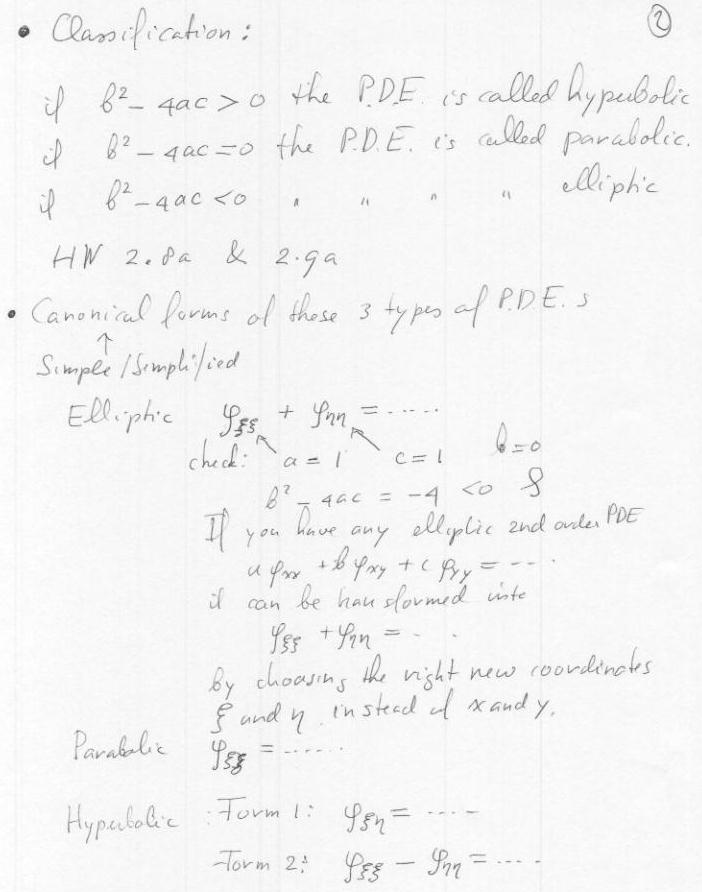 ②
• Classification:
if b² - 4ac > 0 the P.D.E. is called hyperbolic
if b² - 4ac = 0 the P.D.E. is called parabolic.
if b² - 4ac < 0 " " " " elliptic
HW 2.8a & 2.9a
• Canonical forms of these 3 types of P.D.E.s
↑
Simple/Simplified
Elliptic φξξ + φηη = .....
check: a = 1 c = 1 b = 0
b² - 4ac = -4 < 0
If you have any elliptic 2nd order PDE
aφxx + bφxy + cφyy = ---.
it can be transformed into
φξξ + φηη = - .
by choosing the right new coordinates
ξ and η instead of x and y.
Parabolic φξξ = -.....
Hyperbolic : Form 1: φξη = ----
Form 2: φξξ - φηη = ----